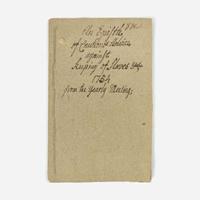 An Epistle
of Caution & Advice
against
keeping of Slaves
1754
from the Yearly Meeting